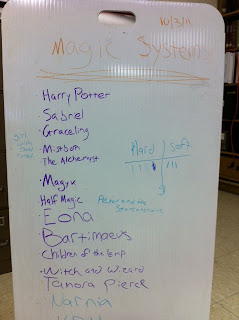 10/3/11
Magic Systems
Harry Potter
Sabriel
Graceling
Mistborn
The Alchemyst
Hard | Soft
Magyk
Half Magic
Peter and the Starcatchers
Eona
Bartimaeus
Children of the Lamp
Witch and Wizard
Tamora Pierce
Narnia